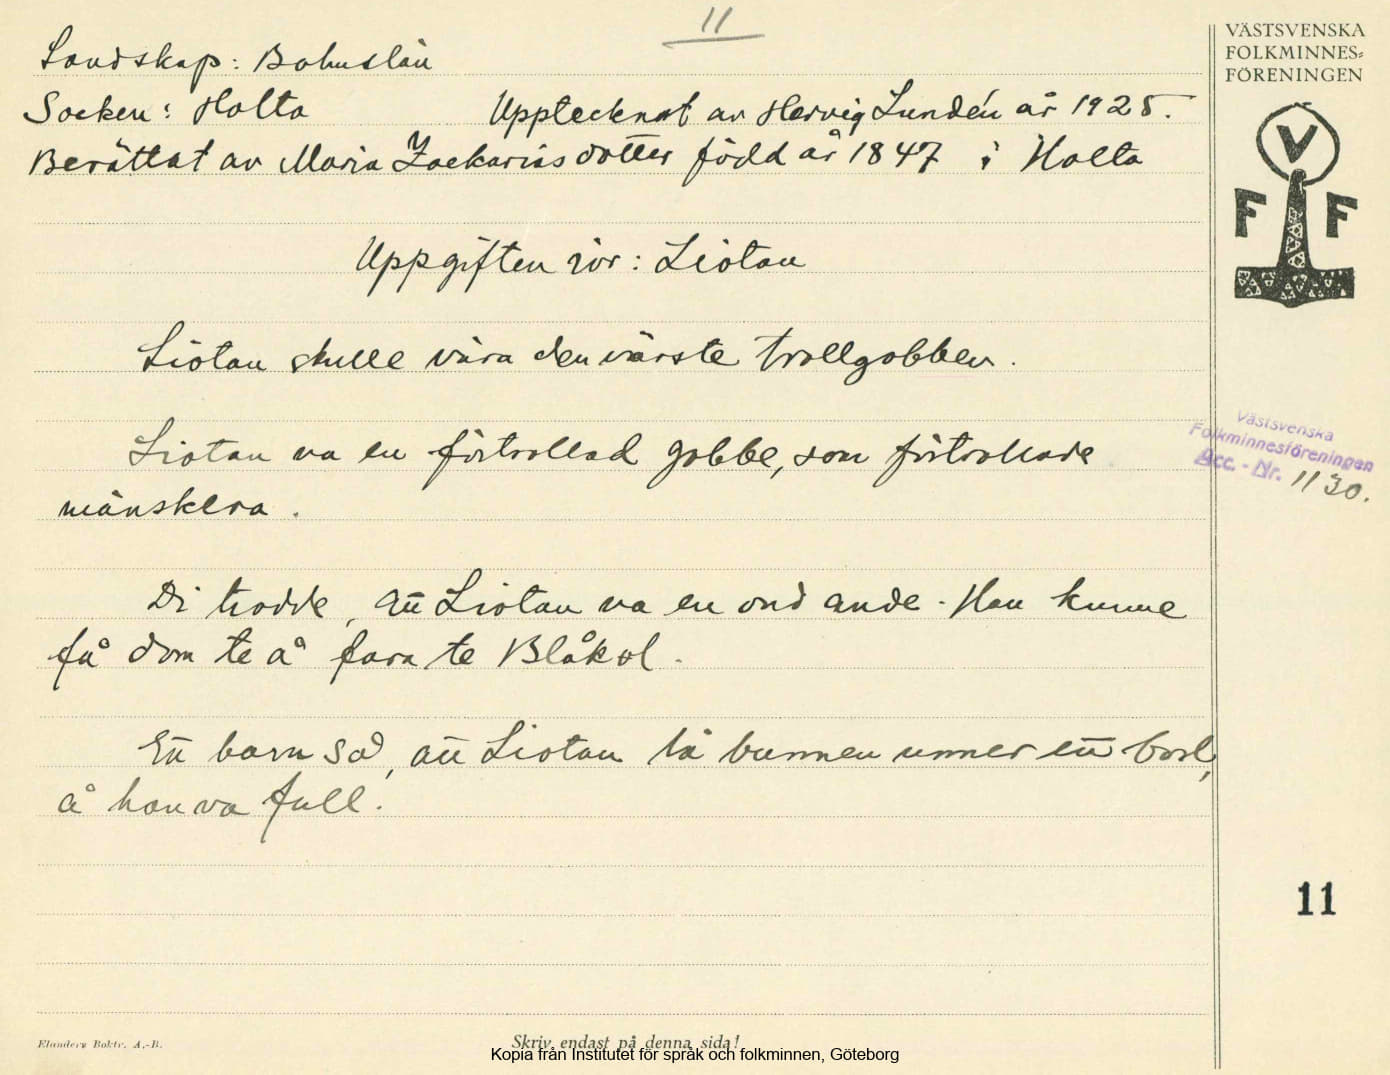 11
VÄSTSVENSKA
FOLKMINNES=
FÖRENINGEN
Landskap: Bohuslän
Socken: Holta Upptecknat av Hervig Lundén år 1925.
Berättat av Maria Zackariasdotter född år 1847 i Holta
V
F F
Uppgiften rör: Liotan
Liotan skulle våra den värste trollgobben.
Liotan va en förtrollad gobbe, som förtrollade
mänskera.
Västsvenska
Folkminnesföreningen
Acc. - Nr. 1130.
Di trodde, att Liotan va en ond ande. Han kunne
få dom te å fara te Blåkol.
Ett barn sad, att Liotan lå bunnen unner ett bord,
å han va full.
11
Elanders Boktr. A.-B.
Skriv endast på denna sida!
Kopia från Institutet för språk och folkminnen, Göteborg